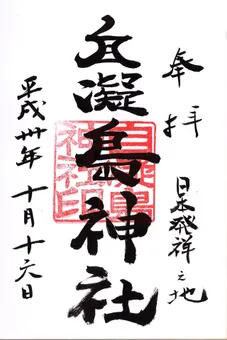 奉拝
日本発祥之地
自凝島神社
自凝島
神社印
平成卅年十月十六日